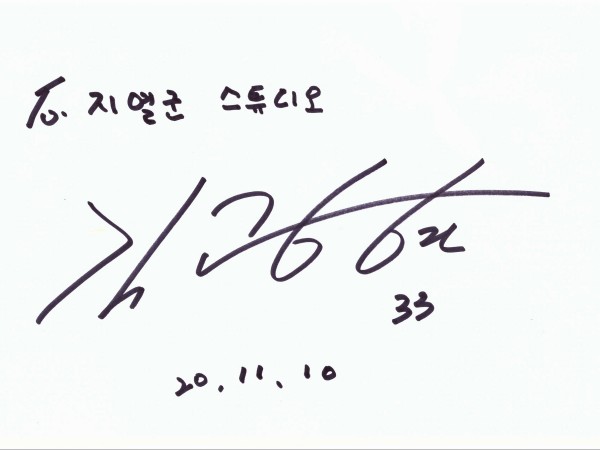 To. 지열군 스튜디오
33
20.11.10